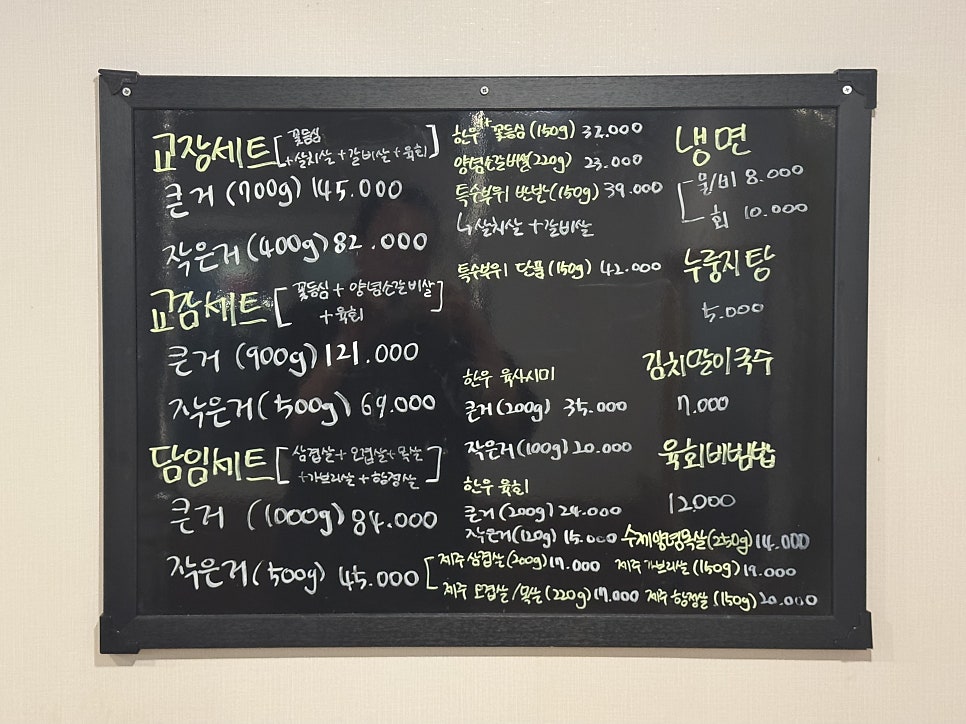 교장세트 [꽃등심
+살치살+갈비살+육회]
큰거 (700g) 145.000
작은거 (400g) 82.000
교감세트 [꽃등심 + 양념소갈비살
+육회]
큰거 (900g) 121.000
작은거 (500g) 69.000
담임세트 [삼겹살+오겹살+목살
+가브리살+항정살]
큰거 (1000g) 84.000
작은거 (500g) 45.000
한우 꽃등심 (150g) 32.000
양념소갈비살(220g) 23.000
특수부위 반반(150g) 39.000
↳살치살+갈비살
특수부위 단품(150g) 42.000
한우 육사시미
큰거 (200g) 35.000
작은거 (100g) 20.000
한우 육회
큰거 (200g) 24.000
작은거 (120g) 15.000
제주 삼겹살 (200g) 17.000
제주 오겹살/목살 (220g) 17.000
냉면
물/비 8.000
회 10.000
누룽지탕
5.000
김치말이국수
7.000
육회비빔밥
12.000
수제양념목살(250g) 14.000
제주 가브리살 (150g) 19.000
제주 항정살 (150g) 20.000